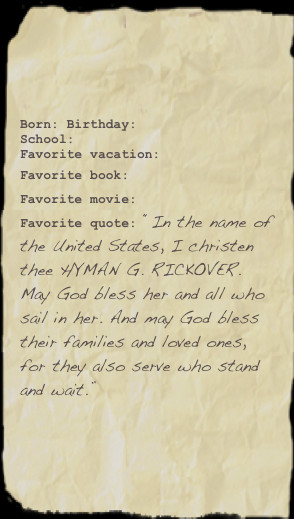 Born: Birthday:
School:
Favorite vacation:
Favorite book:
Favorite movie:
Favorite quote: " In the name of
the United States, I christen
thee HYMAN G. RICKOVER.
May God bless her and all who
sail in her. And may God bless
their families and loved ones,
for they also serve who stand
and wait."